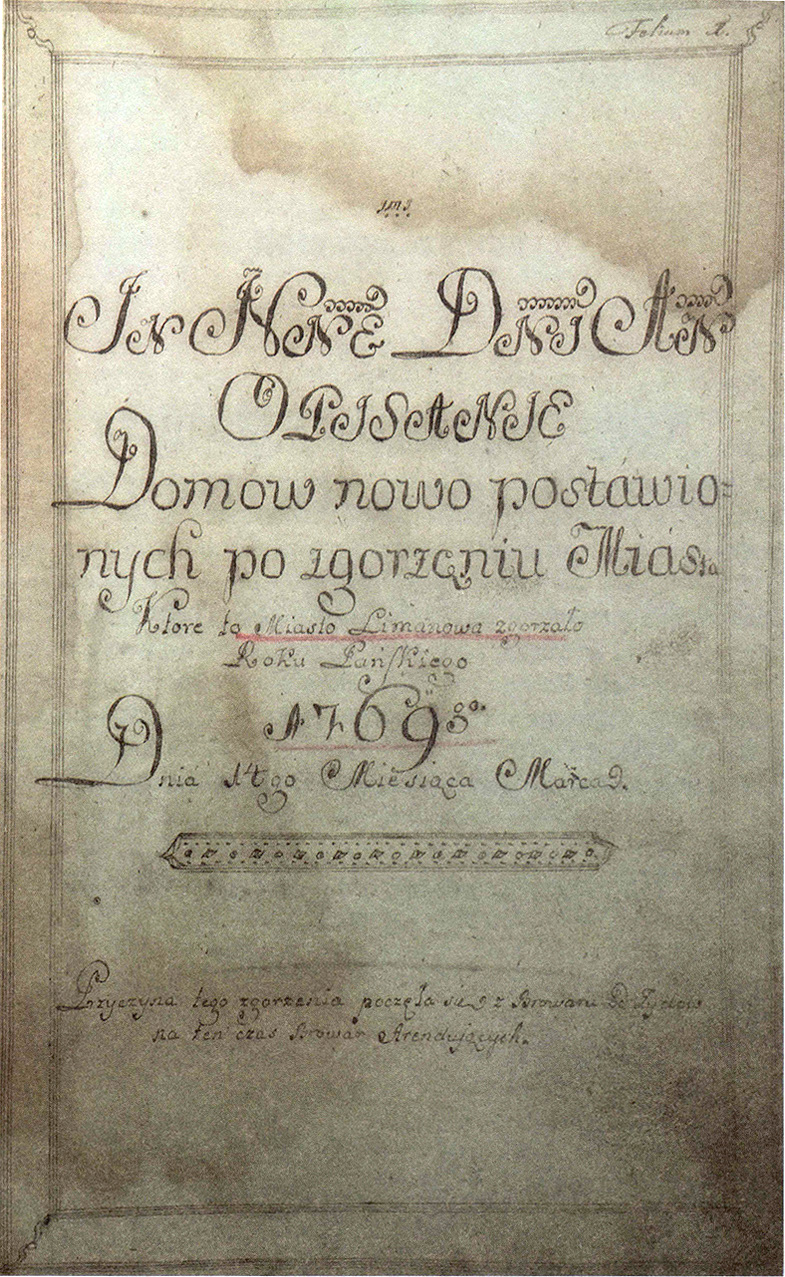 Folium 1.
In Nne Dni Amn
OPISANIE
Domow nowo postáwio=
nych po zgorzęniu Miásta
Ktore to Miasto Limanowa zgorzało
Roku Pańskiego
1769go.
Dnia 14go Miesiąca Marca
Przyczyna tego zgorzenia poczęła się z Browaru Od Żydow
na ten czas Browar Arendujących.